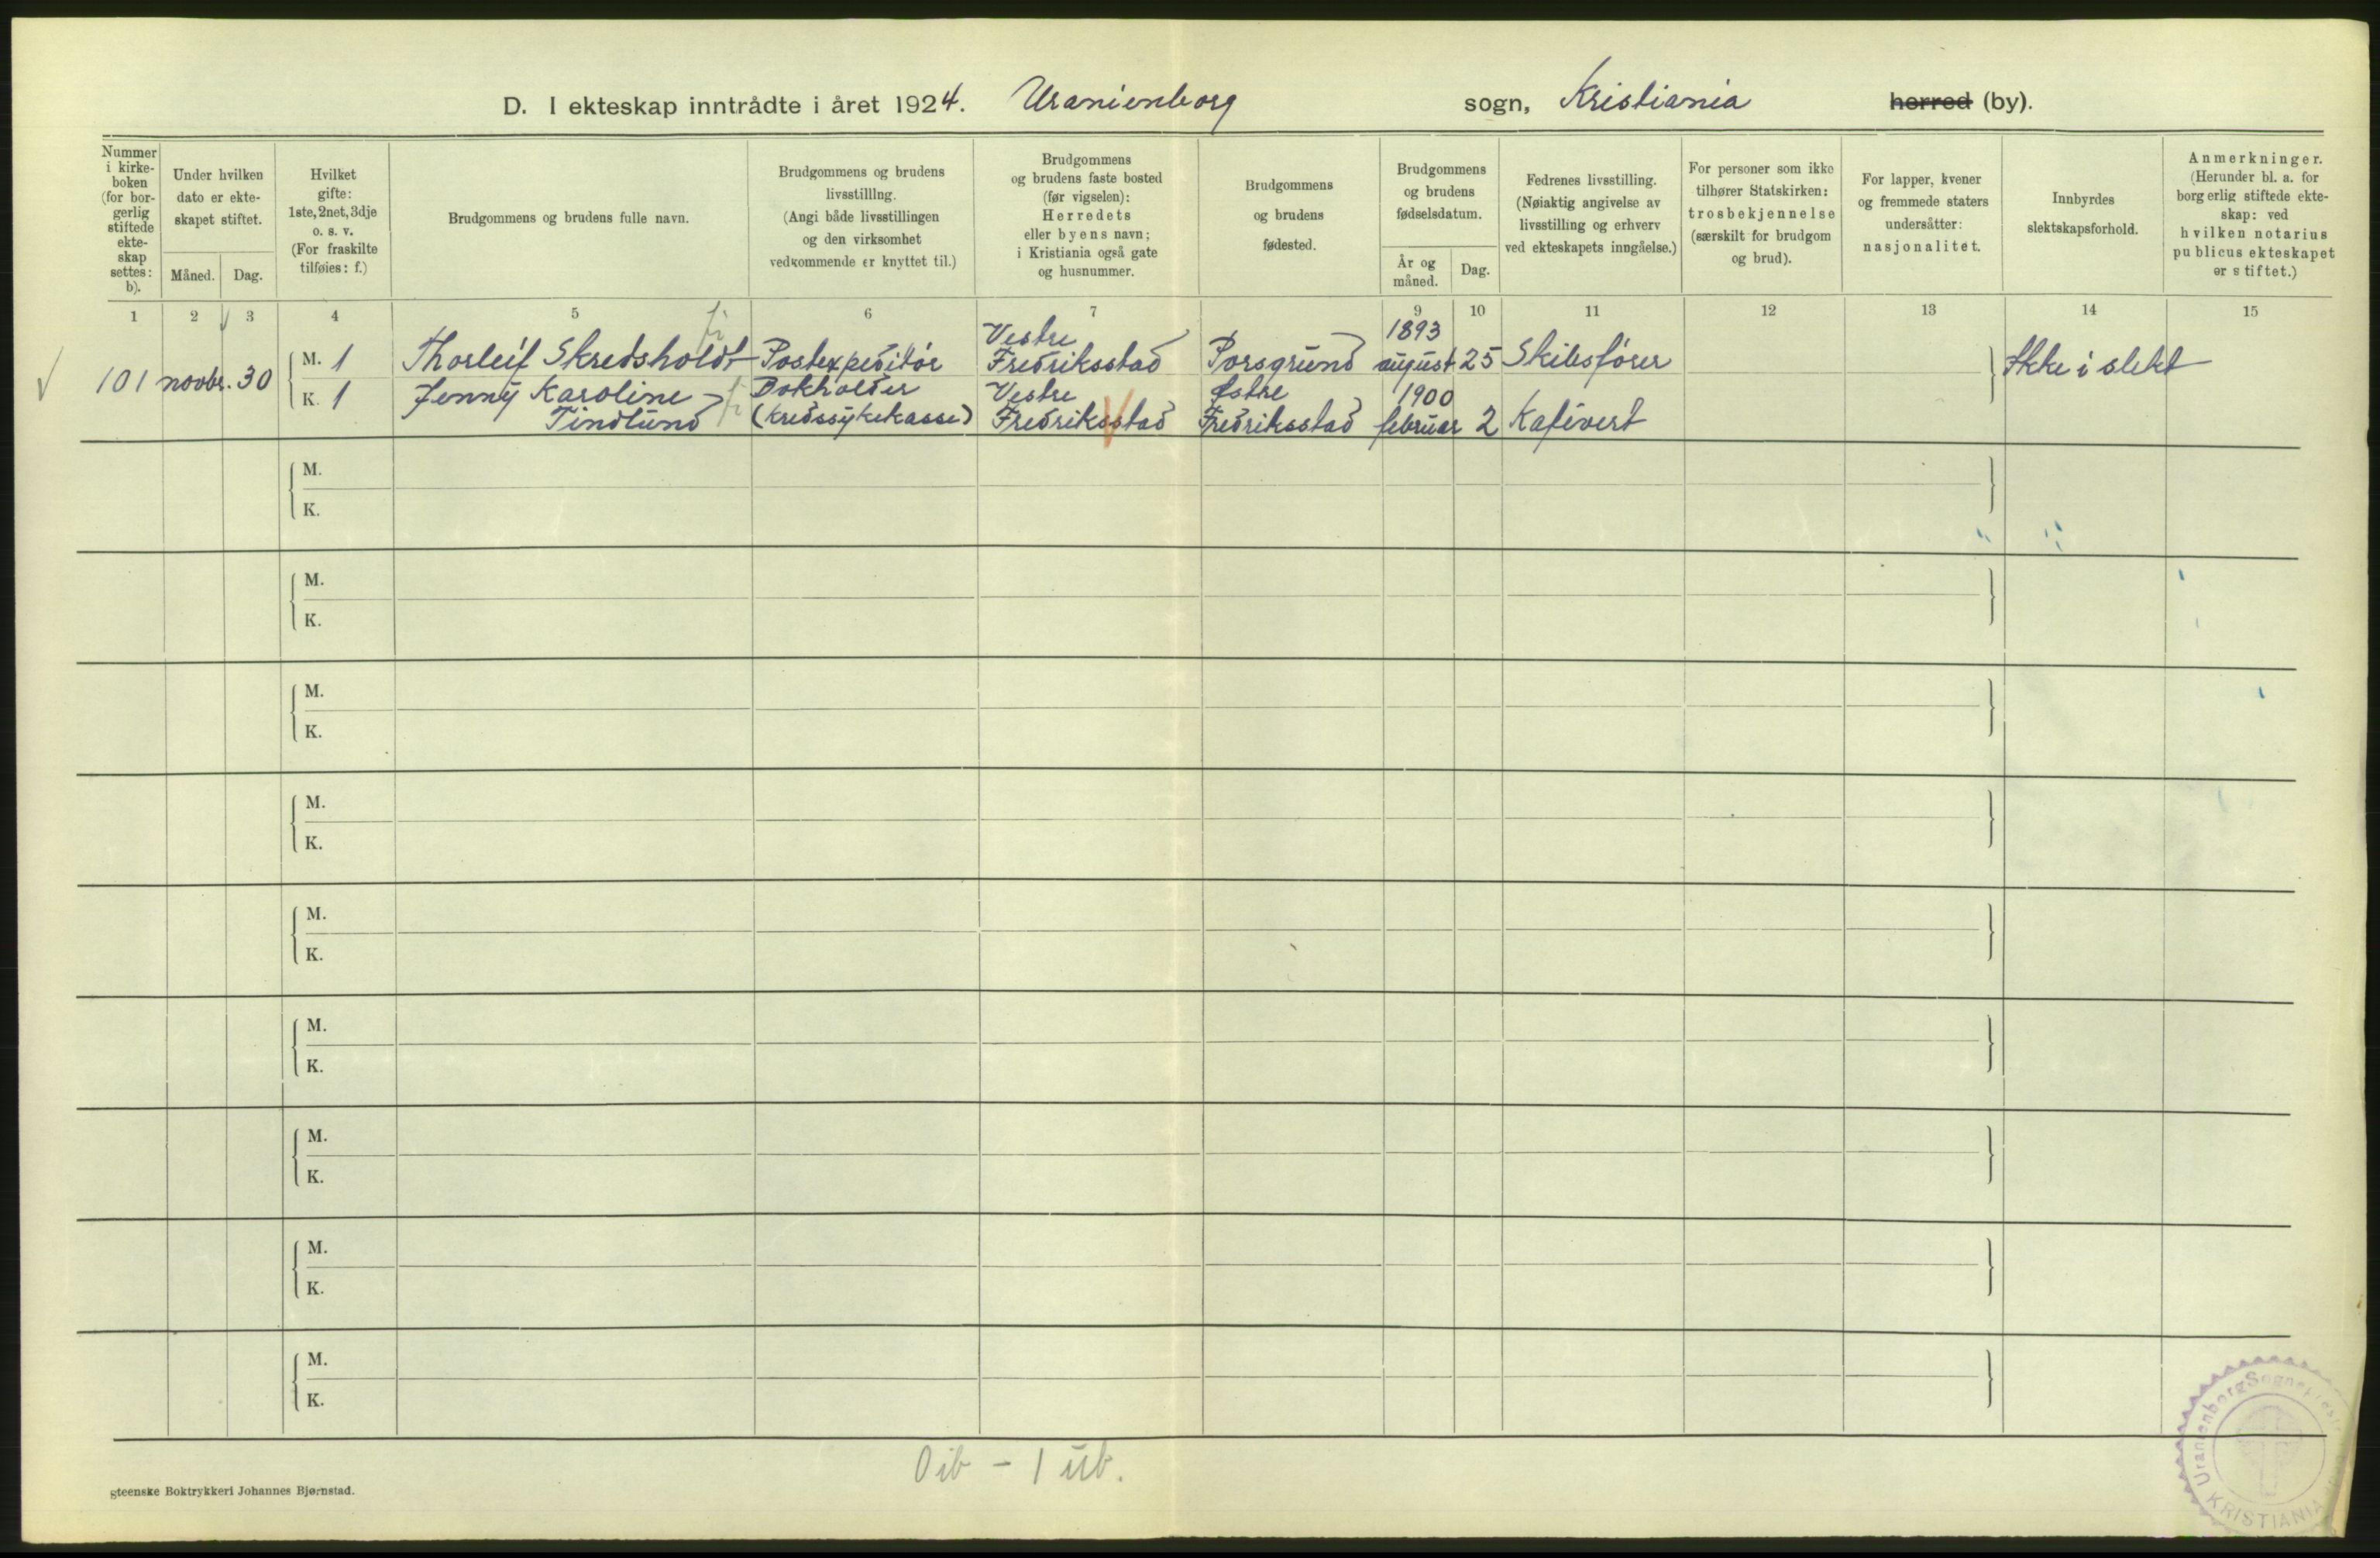 D. I ekteskap inntrådte i året 1924. Uranienborg sogn, Kristiania herred (by).
Nummer
i kirke-
boken
(for bor-
gerlig
stiftede
ekte-
skap
settes:
b).
Under hvilken
dato er ekte-
skapet stiftet.
Måned. Dag.
Hvilket
gifte:
1ste, 2net, 3dje
o. s. v.
(For fraskilte
tilføies: f.)
Brudgommens og brudens fulle navn.
Brudgommens og brudens
livsstilllng.
(Angi både livsstillingen
og den virksomhet
vedkommende er knyttet til.)
Brudgommens
og brudens faste bosted
(før vigselen):
Herredets
eller byens navn;
i Kristiania også gate
og husnummer.
Brudgommens
og brudens
fødested.
Brudgommens
og brudens
fødselsdatum.
År og
måned.
Dag.
Fedrenes livsstilling.
(Nøiaktig angivelse av
livsstilling og erhverv
ved ekteskapets inngåelse.)
For personer som ikke
tilhører Statskirken:
trosbekjennelse
(særskilt for brudgom
og brud).
For lapper, kvener
og fremmede staters
undersåtter:
nasjonalitet.
Innbyrdes
slektskapsforhold.
Anmerkninger.
(Herunder bl. a. for
borgerlig stiftede ekte-
skap: ved
hvilken notarius
publicus ekteskapet
er stiftet.)
1 2 3 4 5 6 7 9 10 11 12 13 14 15
Vestre 1893
M. 1 Thorleif Skredsholdt Postexpeditør Fredriksstad Porsgrund august 25 Skibsfører Ikke i slekt
101 novbr. 30
K. 1 Jenny Karoline Bokholder Vestre Østre 1900
Tindlund (kredssykekasse) Fredriksstad Fredriksstad februar 2 Kafévert
M.
K.
M.
K.
M.
K.
M.
K.
M.
K.
M.
K.
M.
K.
M.
K.
M.
K.
0 ib - 1 ub.
gteenske Boktrykkeri Johannes Bjørnstad.
Uranienborg Sogneprest
KRISTIANIA